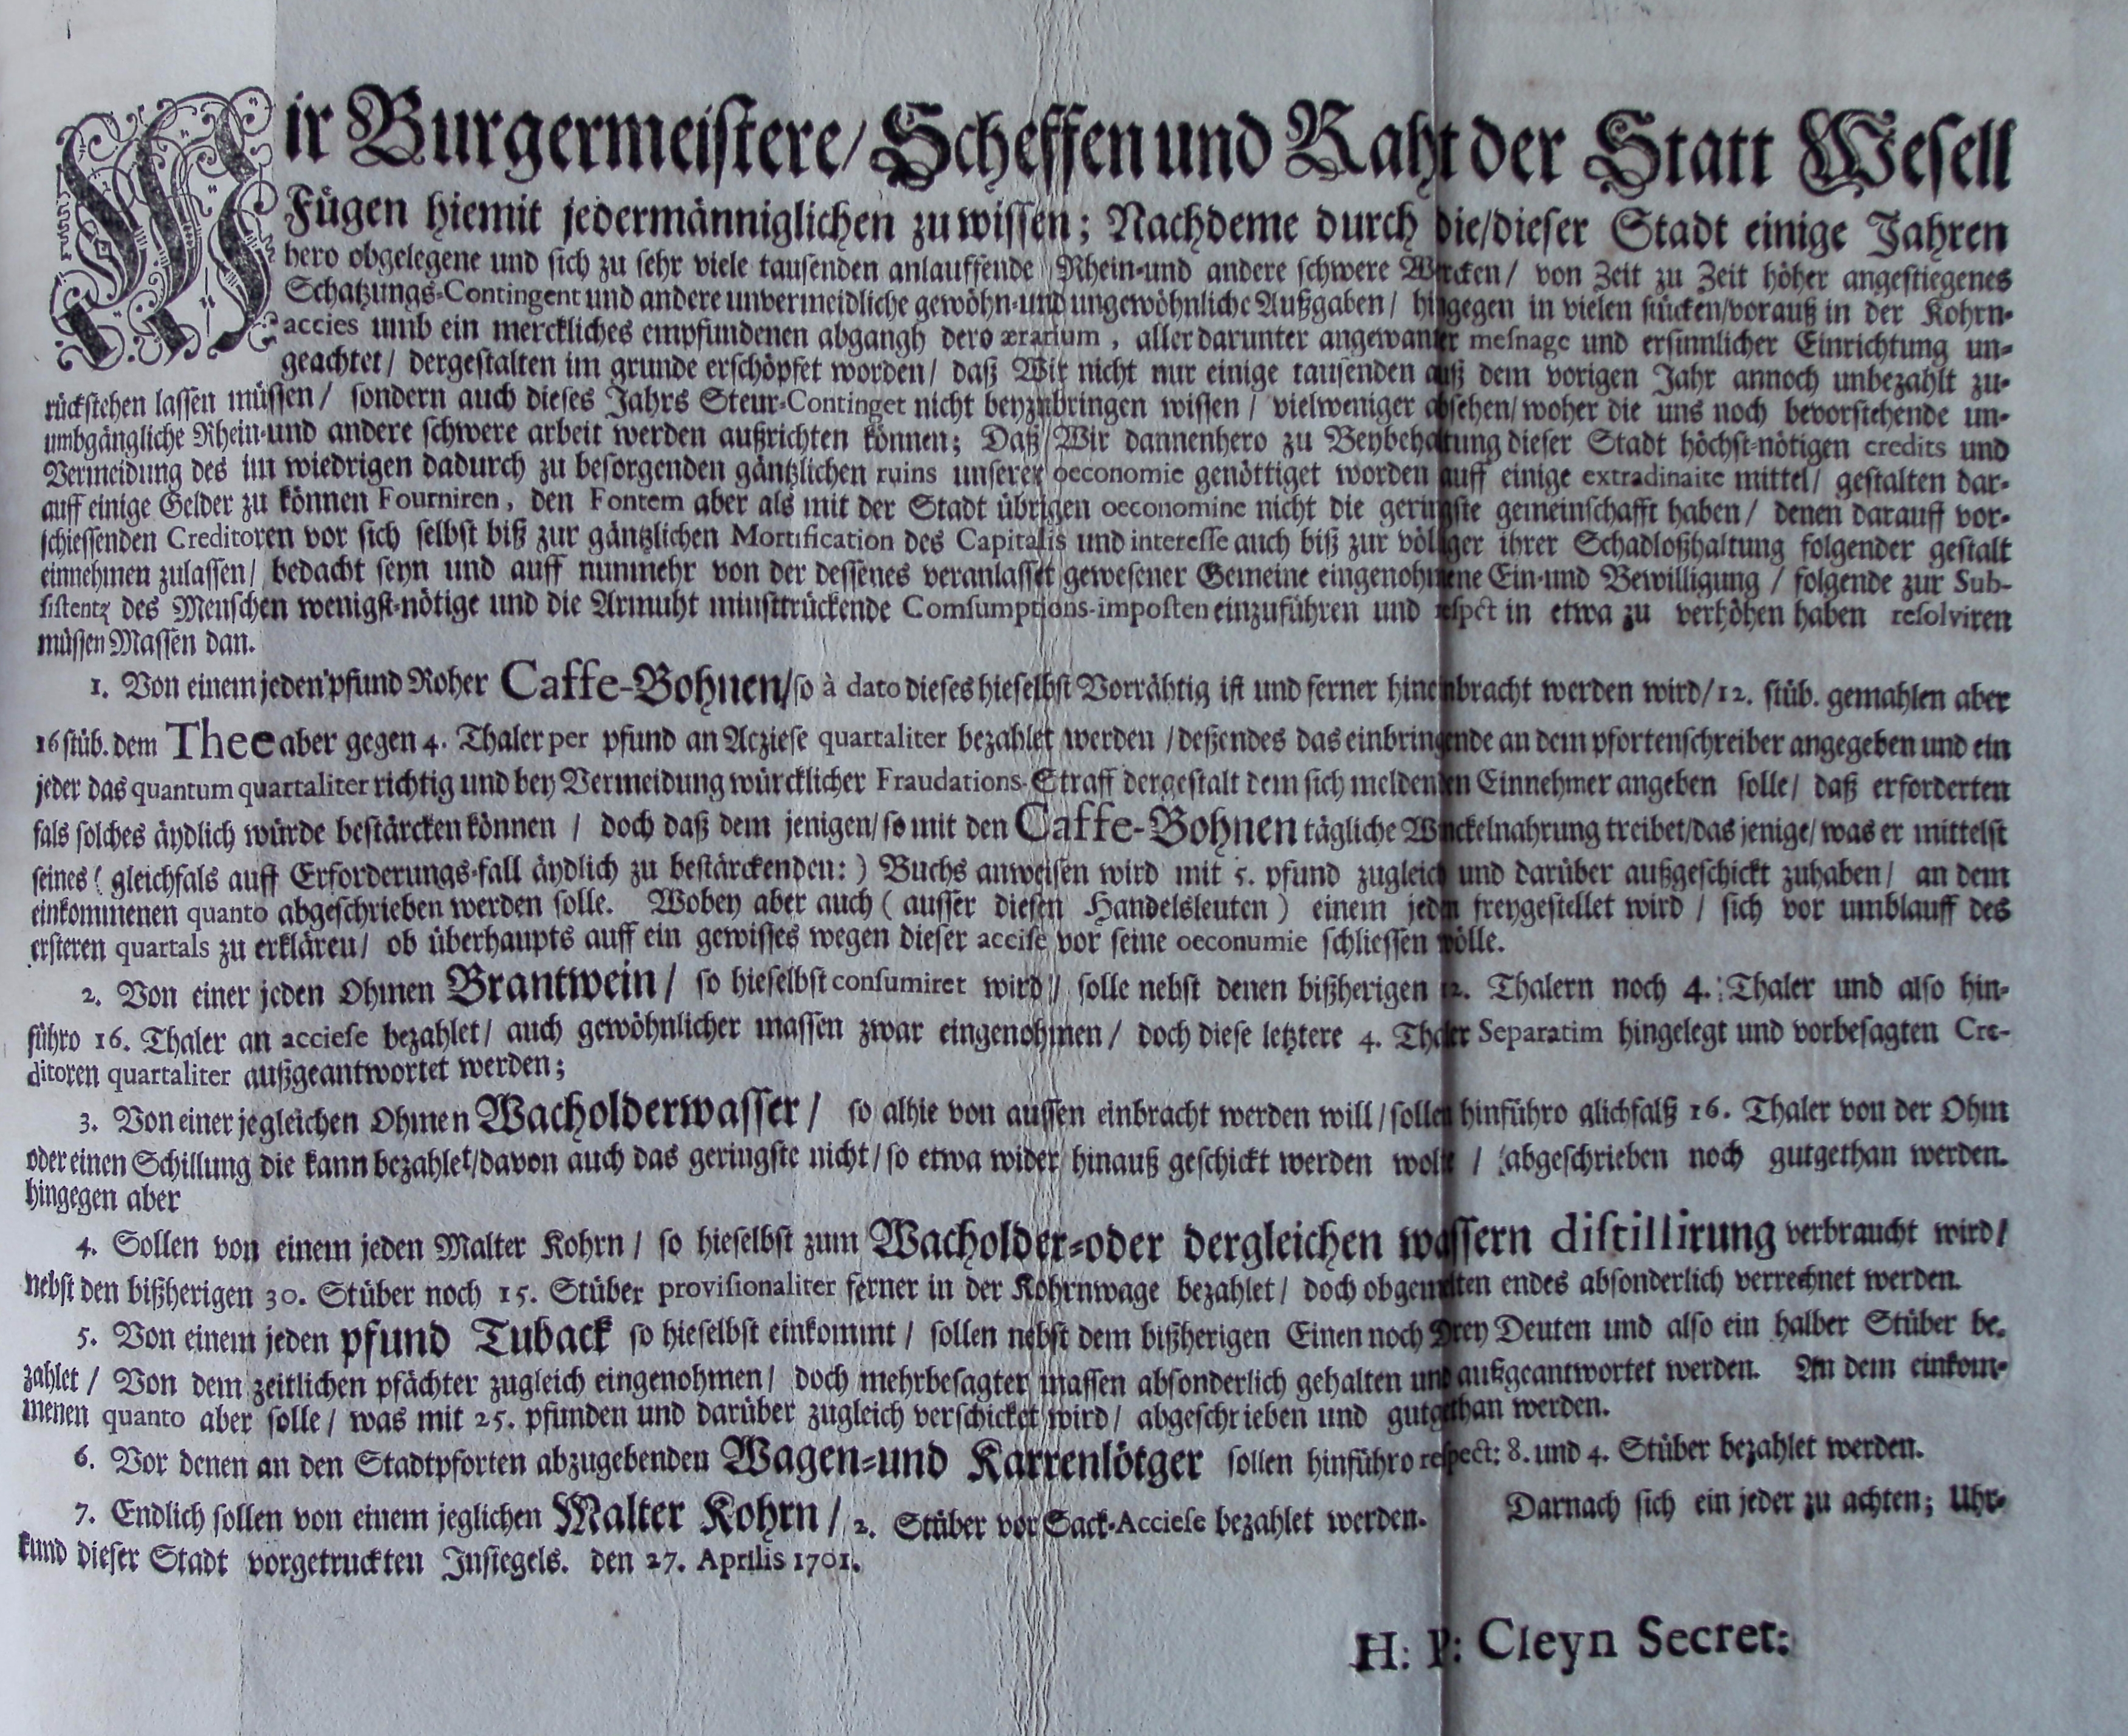 Wir Burgermeistere/ Scheffen und Raht der Statt Wesell
Fügen hiemit jedermänniglichen zu wissen; Nachdeme durch die/dieser Stadt einige Jahren
hero obgelegene und sich zu sehr viele tausenden anlauffende Rhein-und andere schwere Wercken/ von Zeit zu Zeit höher angestiegenes
Schatzungs-Contingent und andere unvermeidliche gewöhn-und ungewöhnliche Außgaben/ hingegen in vielen stücken/vorauß in der Kohrn-
accies umb ein merckliches empfundenen abgangh dero ærarium, aller darunter angewanter mesnage und ersinnlicher Einrichtung un-
geachtet/ dergestalten im grunde erschöpfet worden/ daß Wir nicht nur einige tausenden auß dem vorigen Jahr annoch unbezahlt zu-
rückstehen lassen müssen/ sondern auch dieses Jahrs Steur-Continget nicht beyzubringen wissen/ vielweniger absehen/woher die uns noch bevorstehende un-
umbgängliche Rhein-und andere schwere arbeit werden außrichten können; Daß Wir dannenhero zu Beybehaltung dieser Stadt höchst-nötigen credits und
Vermeidung des im wiedrigen dadurch zu besorgenden gäntzlichen ruins unserer oeconomie genöttiget worden auff einige extradinaite mittel/ gestalten dar-
auff einige Gelder zu können Fourniren, den Fontem aber als mit der Stadt übrigen oeconomine nicht die geringste gemeinschafft haben/ denen darauff vor-
schiessenden Creditoren vor sich selbst biß zur gäntzlichen Mortification des Capitalis und interesse auch biß zur völliger ihrer Schadloßhaltung folgender gestalt
einnehmen zulassen/ bedacht seyn und auff nunmehr von der dessenes veranlasset gewesener Gemeine eingenohmene Ein-und Bewilligung/ folgende zur Sub-
sistentz des Menschen wenigst-nötige und die Armuht minsttrückende Comsumptions-imposten einzuführen und respct in etwa zu verhöhen haben resolviren
müssen Massen dan.
1. Von einem jeden pfund Roher Caffe-Bohnen/so à dato dieses hieselbst Vorrähtig ist und ferner hineinbracht werden wird/12. stüb. gemahlen aber
16 stüb. dem Thee aber gegen 4. Thaler per pfund an Acziese quartaliter bezahlet werden/deßendes das einbringende an dem pfortenschreiber angegeben und ein
jeder das quantum quartaliter richtig und bey Vermeidung würcklicher Fraudations-Straff dergestalt dem sich meldenden Einnehmer angeben solle/ daß erforderten
fals solches äydlich würde bestärcken können/ doch daß dem jenigen/so mit den Caffe-Bohnen tägliche Winckelnahrung treibet/das jenige/was er mittelst
seines (gleichfals auff Erforderungs-fall äydlich zu bestärckenden:) Buchs anweisen wird mit 5. pfund zugleich und darüber außgeschickt zuhaben/ an dem
einkommenen quanto abgeschrieben werden solle. Wobey aber auch (ausser diesen Handelsleuten) einem jeden freygestellet wird/ sich vor umblauff des
ersteren quartals zu erkläreu/ ob überhaupts auff ein gewisses wegen dieser accise vor seine oeconumie schliessen wölle.
2. Von einer jeden Ohmen Brantwein/ so hieselbst consumiret wird/ solle nebst denen bißherigen 12. Thalern noch 4. Thaler und also hin-
führo 16. Thaler an acciese bezahlet/ auch gewöhnlicher massen zwar eingenohmen/ doch diese letztere 4. Thaler Separatim hingelegt und vorbesagten Cre-
ditoren quartaliter außgeantwortet werden;
3. Von einer jegleichen Ohmen Wacholderwasser/ so alhie von aussen einbracht werden will/sollen hinführo glichfalß 16. Thaler von der Ohm
oder einen Schillung die kann bezahlet/davon auch das geringste nicht/so etwa wider hinauß geschickt werden wolte/ abgeschrieben noch gutgethan werden.
hingegen aber
4. Sollen von einem jeden Malter Kohrn/ so hieselbst zum Wacholder-oder dergleichen wassern distillirung verbraucht wird/
nebst den bißherigen 30. Stüber noch 15. Stüber provisionaliter ferner in der Kohrnwage bezahlet/ doch obgemelten endes absonderlich verrechnet werden.
5. Von einem jeden pfund Tuback so hieselbst einkommt/ sollen nebst dem bißherigen Einen noch Drey Deuten und also ein halber Stüber be-
zahlet/ Von dem zeitlichen pfächter zugleich eingenohmen/ doch mehrbesagter massen absonderlich gehalten und außgeantwortet werden. An dem einkom-
menen quanto aber solle/ was mit 25. pfunden und darüber zugleich verschicket wird/ abgeschrieben und gutgethan werden.
6. Vor denen an den Stadtpforten abzugebenden Wagen-und Karrenlötger sollen hinführo respect: 8. und 4. Stüber bezahlet werden.
7. Endlich sollen von einem jeglichen Malter Kohrn/ 2. Stüber vor Sack-Acciese bezahlet werden. Darnach sich ein jeder zu achten; Uhr-
kund dieser Stadt vorgetruckten Insiegels. den 27. Aprilis 1701.
H: P: Cleyn Secret: